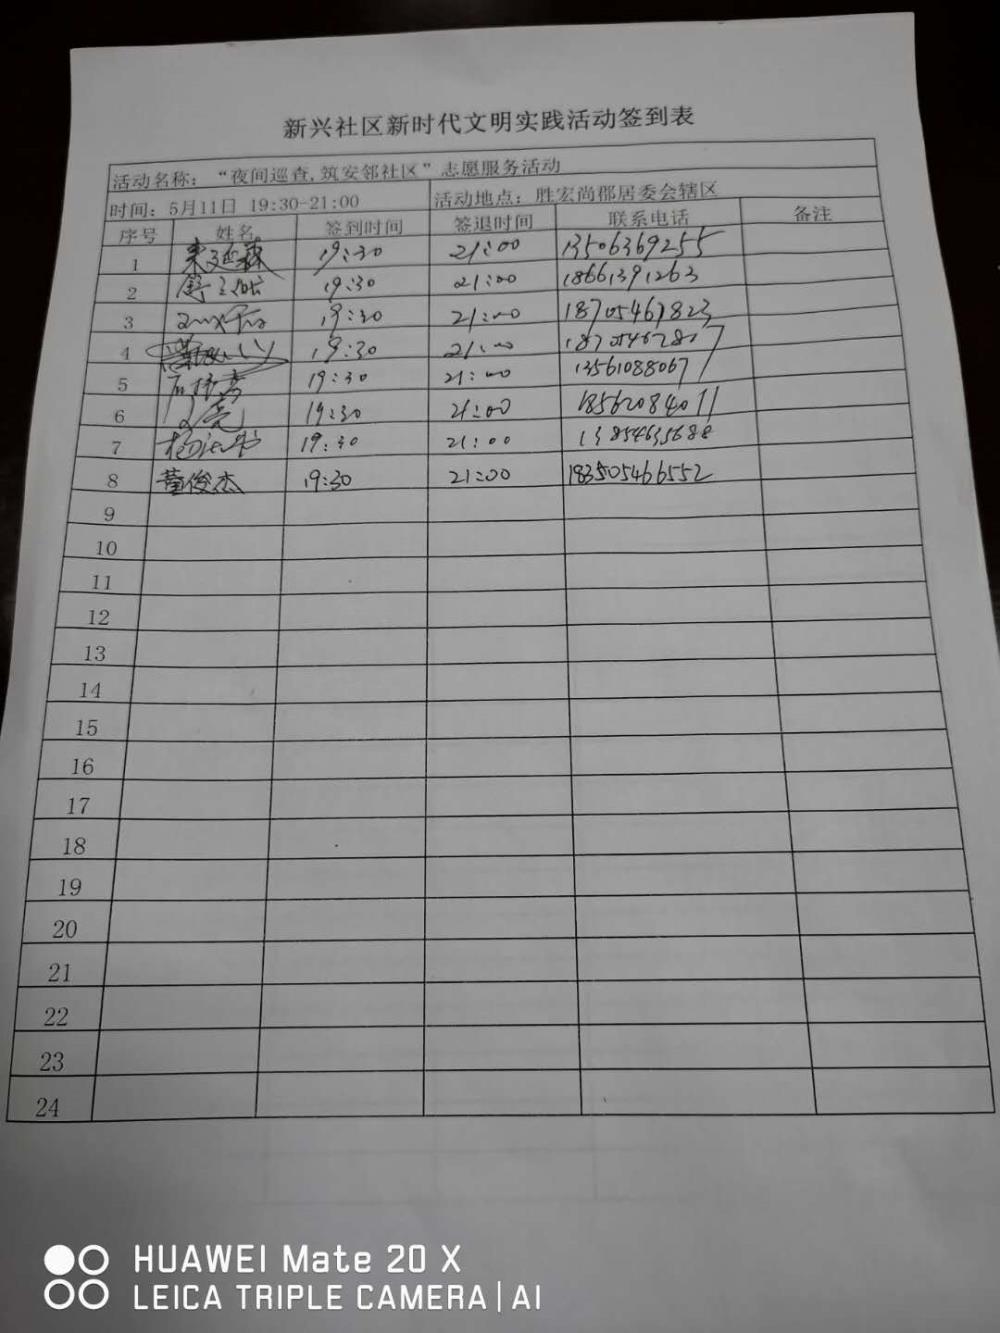 新兴社区新时代文明实践活动签到表
活动名称：“夜间巡查,筑安邻社区”志愿服务活动
时间：5月11日 19:30-21:00 活动地点：胜宏尚郡居委会辖区
序号 姓名 签到时间 签退时间 联系电话 备注
1 19:30 21:00 13506369255
2 19:30 21:00 18661391263
3 19:30 21:00 18705461823
4 19:30 21:00
5 19:30 21:00 13561088067
6 19:30 21:00 18562084011
7 19:30 21:00 13854635688
8 董俊杰 19:30 21:00 183505466552
9
10
11
12
13
14
15
16
17
18
19
20
21
22
23
24
HUAWEI Mate 20 X
LEICA TRIPLE CAMERA | AI